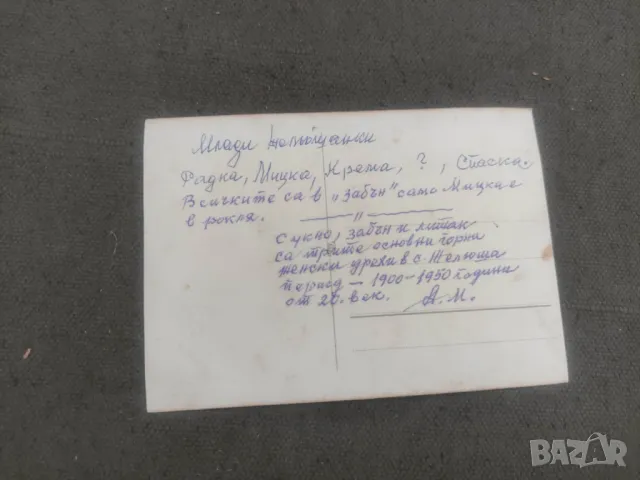 Млади желюшанки
Радка, Мицка, Крема, ?, Спаска.
Всичките са в „забън" само Мицка е
в рокля.
"
Сукно, забън и литак
са трите основни горни
женски дрехи в с. Желюша
период – 1900–1950 години
от 20. век. А.М.
BAZAR
bg